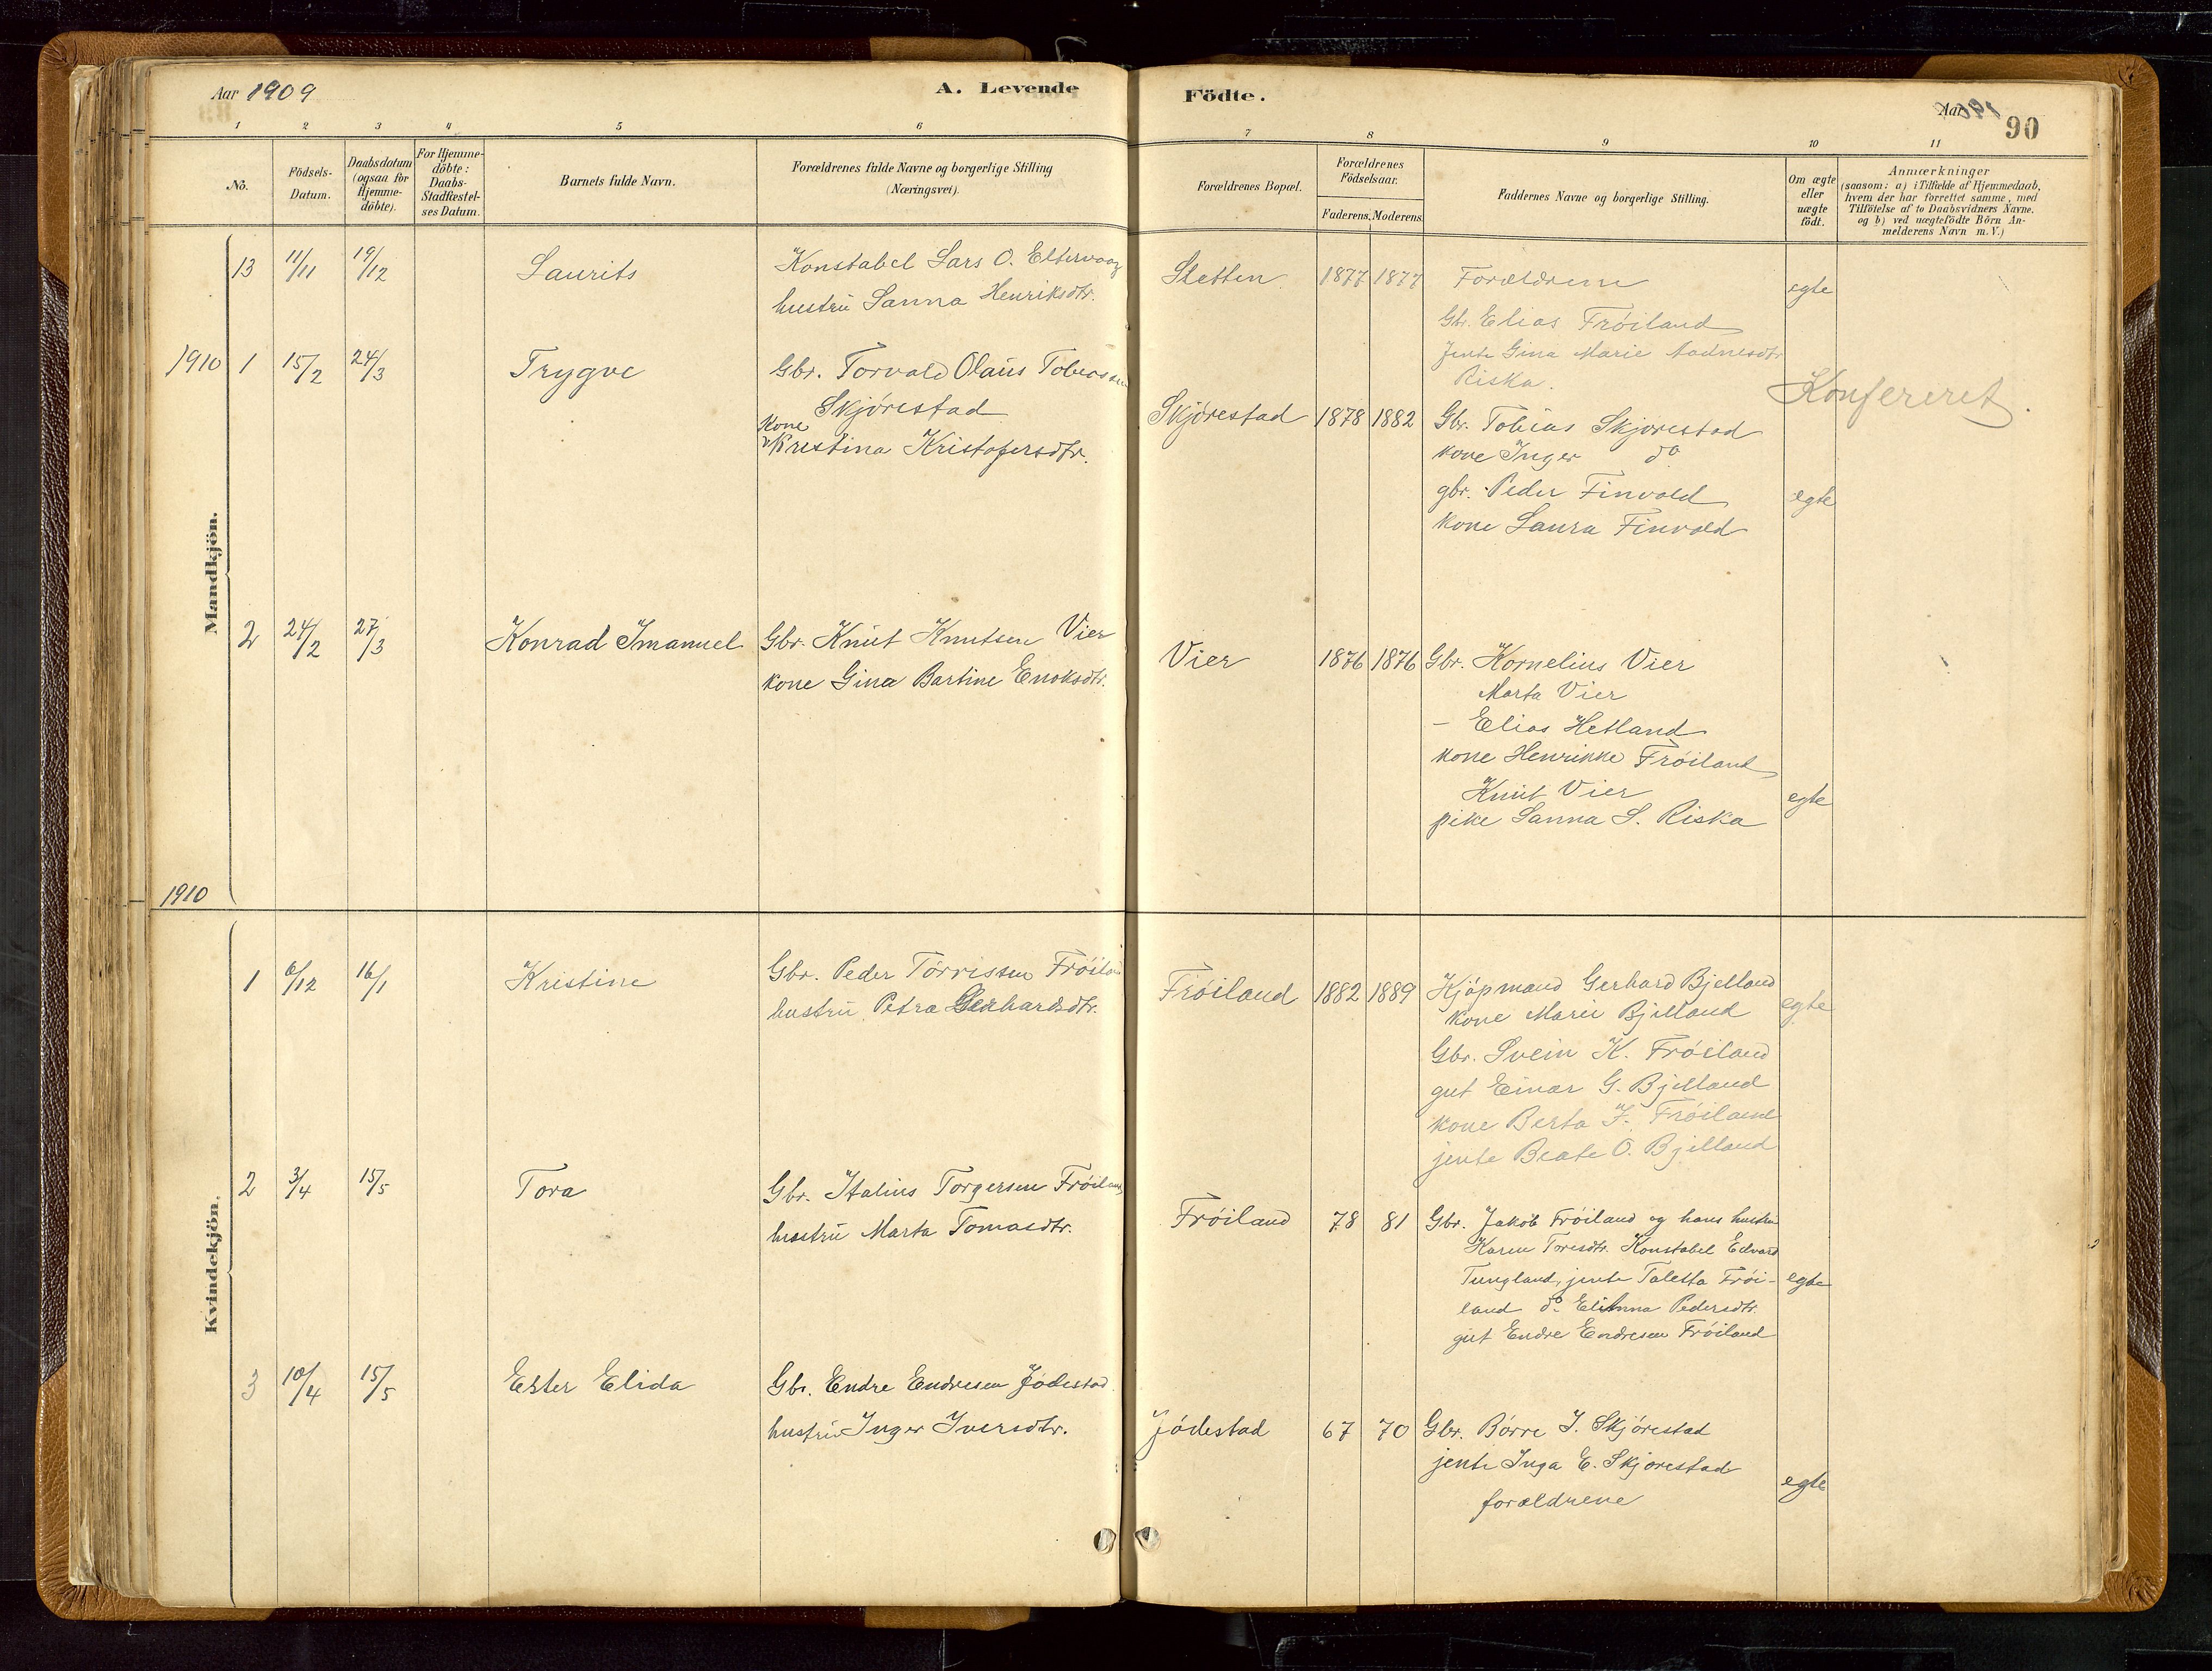 Aar 1909
A. Levende
Födte.
Aar
90
1 2 3 4 5 6 7 8 9 10 11
No.
Födsels-
Datum.
Daabsdatum
(ogsaa for
Hjemme-
döbte).
For Hjemme-
döbte:
Daabs-
Stadfæstel-
ses Datum.
Barnets fulde Navn.
Forældrenes fulde Navne og borgerlige Stilling
(Næringsvei).
Forældrenes Bopæl.
Forældrenes
Födselsaar.
Faderens. Moderens.
Faddernes Navne og borgerlige Stilling.
Om ægte
eller
uægte
födt.
Anmærkninger
(saasom: a) i Tilfælde af Hjemmedaab,
hvem der har forrettet samme, med
Tilföielse af to Daabsvidners Navne.
og b) ved uægtefödte Börn An-
melderens Navn m. V.)
Mandkjön.
13 11/11 19/12 Laurits
Konstabel Lars O. Eltervaag
hustru Sanna Henriksdtr.
Sletten 1877 1877
Forældrene
Gbr. Elias Frøiland
Jente Gina Marie Aadnesdtr
Riska.
egte
1910 1 15/2 24/3 Trygve
Gbr. Torvald Olaus Tobiassen
Skjørestad
kone
Kristina Kristofersdtr.
Skjørestad 1878 1882
Gbr. Tobias Skjørestad
kone Inger do
gbr. Peder Finvold
kone Laura Finvold
egte
Konfereret.
2 24/2 27/3 Konrad Imanuel
Gbr. Knut Knutsen Vier
kone Gina Bartine Enoksdtr.
Vier 1876 1876
Gbr. Kornelius Vier
Marta Vier
- Elias Hetland
kone Henrikke Frøiland
Knut Vier
pike Sanna S. Riska
egte
1910
Kvindekjön.
1 6/12 16/1 Kristine
Gbr. Peder Tørrissen Frøiland
hustru Petra Gerhardsdtr.
Frøiland 1882 1889
Kjøpmand Gerhard Bjelland
kone Marie Bjelland
Gbr. Svein K. Frøiland
gut Einar G. Bjelland
kone Berta J. Frøiland
jente Beate O. Bjelland
egte
2 3/4 15/5 Tora
Gbr. Italius Torgersen Frøiland
hustru Marta Tomasdtr.
Frøiland 78 81
Gbr. Jakob Frøiland og hans hustru
Karen Toresdtr. Konstabel Edvard
Tungland, jente Taletta Frøi-
land do Elianna Pedersdtr.
gut Endre Endresen Frøiland
egte
3 10/4 15/5 Ester Elida
Gbr. Endre Endresen Jødestad
hustru Inger Iversdtr.
Jødestad 67 70
Gbr. Børre I. Skjørestad
jente Inga E. Skjørestad
forældrene
egte